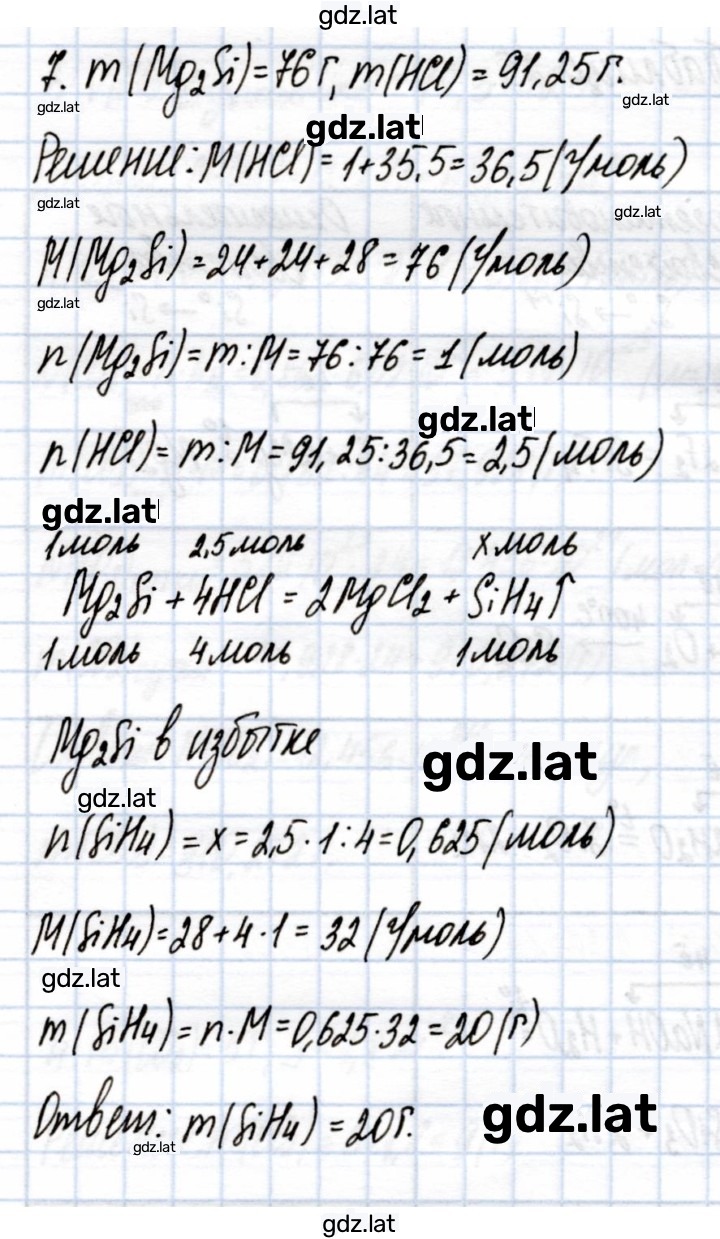 gdz.lat
7. m(Mg₂Si)=76г, m(HCl)=91,25г.
gdz.lat
gdz.lat
gdz.lat
Решение: M(HCl)=1+35,5=36,5(г/моль)
gdz.lat
gdz.lat
M(Mg₂Si)=24+24+28=76(г/моль)
gdz.lat
n(Mg₂Si)=m:M=76:76=1(моль)
gdz.lat
n(HCl)=m:M=91,25:36,5=2,5(моль)
gdz.lat
1моль 2,5моль xмоль
Mg₂Si+4HCl=2MgCl₂+SiH₄↑
1моль 4моль 1моль
Mg₂Si в избытке
gdz.lat
gdz.lat
n(SiH₄)=x=2,5·1:4=0,625(моль)
M(SiH₄)=28+4·1=32(г/моль)
gdz.lat
m(SiH₄)=n·M=0,625·32=20(г)
gdz.lat
Ответ: m(SiH₄)=20г.
gdz.lat
gdz.lat